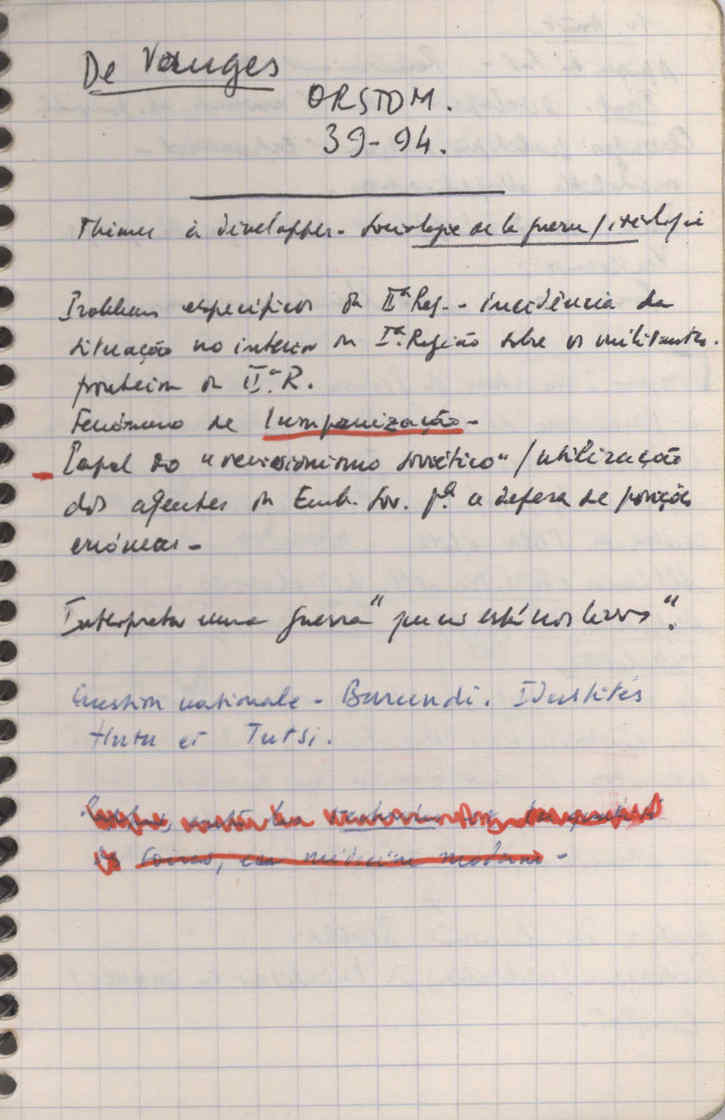 De Vauges
ORSTOM.
39-94.
Thèmes à développer - Sociologie de la guerre / idéologie
Problemas específicos da IIª Reg. - incidência da
situação no interior da Iª Região sobre os militantes.
fronteira da IIª R.
Fenómeno de lumpenização -
- Papel do "revisionismo soviético" / utilização
dos agentes da Emb. Sov. pª a defesa de posições
erróneas -
Interpretar uma guerra "que não está nos livros".
Question nationale - Burundi. Identités
Hutu et Tutsi.
soins, en médecine moderne -